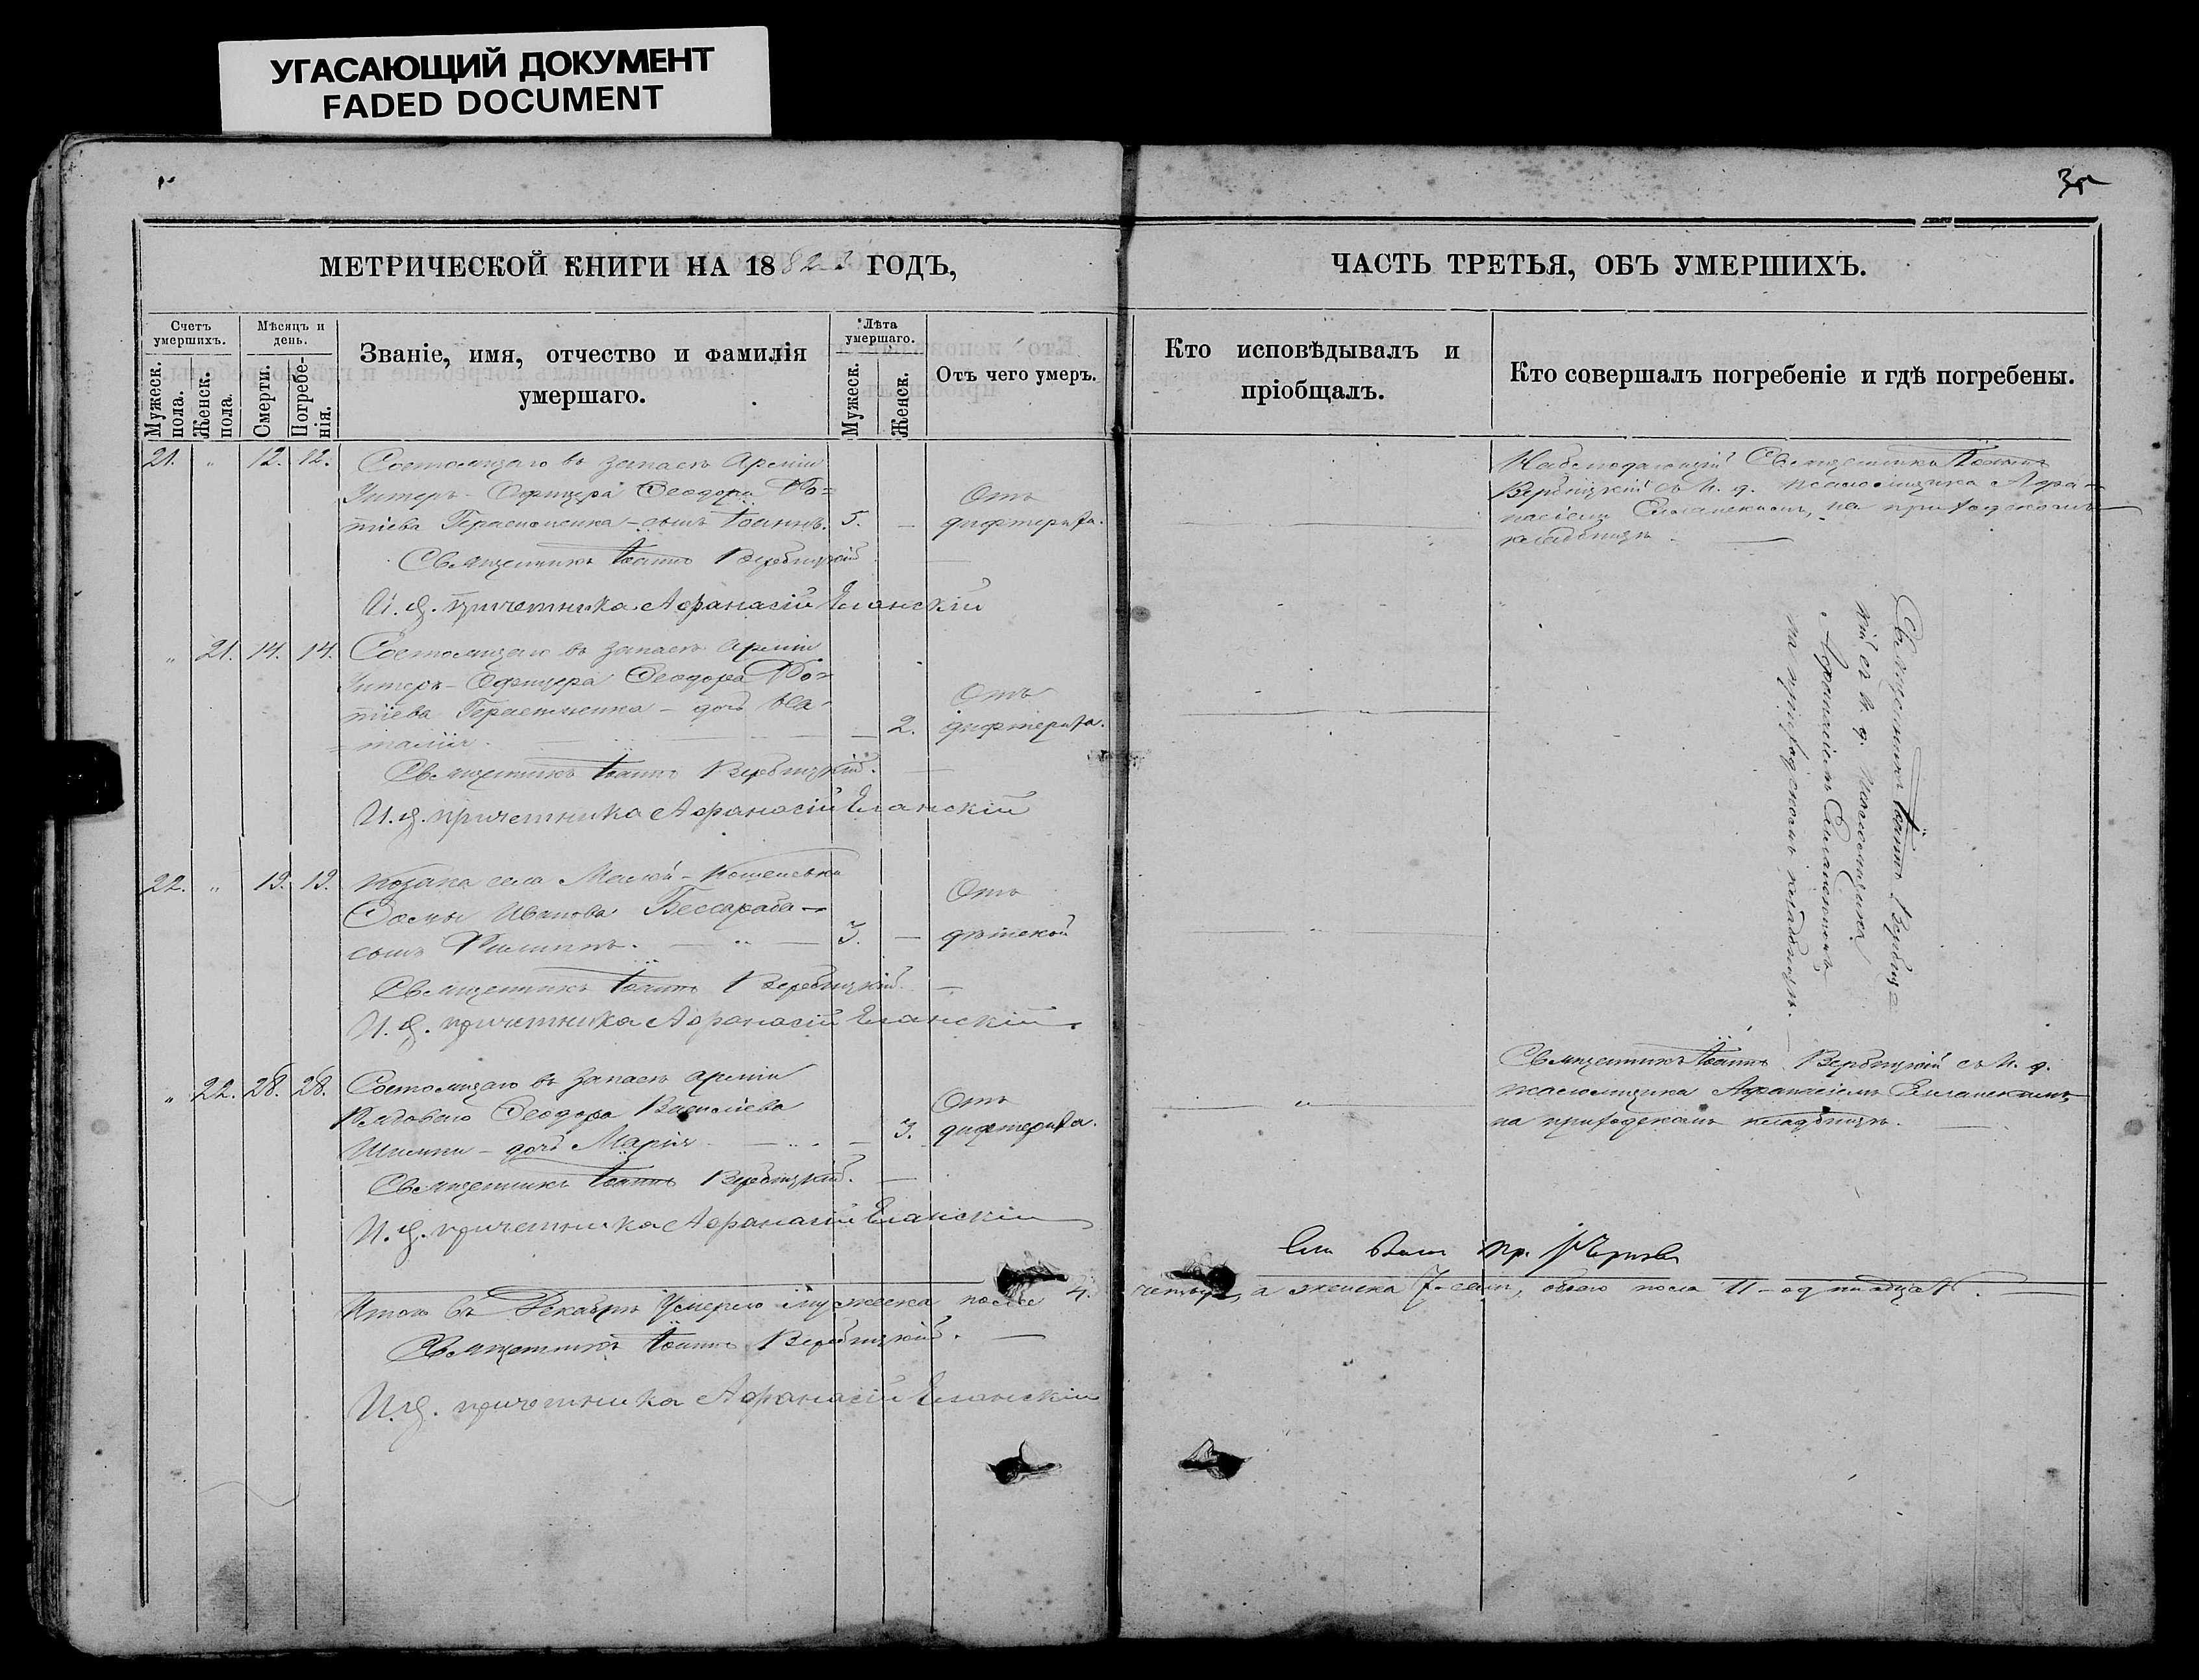 УГАСАЮЩИЙ ДОКУМЕНТ
FADED DOCUMENT
МЕТРИЧЕСКОЙ КНИГИ НА 1882 ГОДЪ,
ЧАСТЬ ТРЕТЬЯ, ОБЪ УМЕРШИХЪ.
Счетъ умершихъ.
Мужеск. пола.
Женск. пола.
Мѣсяцъ и день.
Смерти.
Погребенія.
Званіе, имя, отчество и фамилія умершаго.
Лѣта умершаго.
Мужеск.
Женск.
Отъ чего умеръ.
Кто исповѣдывалъ и пріобщалъ.
Кто совершалъ погребеніе и гдѣ погребены.
21. " 12. 12. Состоящаго въ запасѣ Арміи
Унтеръ-Офицера Ѳеодора Фо=
тіева Герасименка - сынъ Іоаннъ. 5. — Отъ дифтерита.
Священникъ Іоаннъ Вербицкій
И. д. причетника Афанасій
Священникъ Іоаннъ
Вербицкій съ и. д. псаломщика Афа-
насіемъ на приходскомъ
кладбищѣ.
" 21. 14. 14. Состоящаго въ запасѣ Арміи
Унтеръ-Офицера Ѳеодора Фо=
тіева Герасименка - дочь На-
талія. — 2. Отъ дифтерита.
Священникъ Іоаннъ Вербицкій.
И. д. причетника Афанасій
22. " 19. 19. Козака села
Иванова Бессараба
сынъ Филиппъ. 3. — Отъ дѣтской
Священникъ Іоаннъ Вербицкій.
И. д. причетника Афанасій
Священникъ Іоаннъ Вербиц=
кій съ и. д. псаломщика
Афанасіемъ
на приходскомъ кладбищѣ.
" 22. 28. 28. Состоящаго въ запасѣ арміи
Рядоваго Ѳеодора Васильева
дочь Марія — 3. Отъ дифтерита.
Священникъ Іоаннъ Вербицкій.
И. д. причетника Афанасій
Священникъ Іоаннъ Вербицкій съ и. д.
псаломщика Афанасіемъ
на приходскомъ кладбищѣ.
Итого въ Декабрѣ умерло мужеска пола 4. четыре, а женска 7-семь, обоего пола 11-одинадцать.
Священникъ Іоаннъ Вербицкій.
И. д. причетника Афанасій